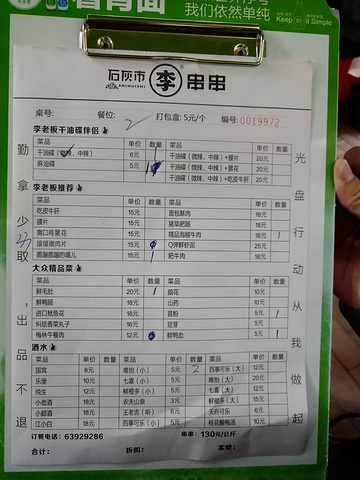 我们依然单纯
Keep it Simple
石灰市 李 串串
SHIHUISHI
桌号: 餐位: 2 打包盒: 5元/个 编号: 0019972
勤拿少取,出品不退
光盘行动从我做起
李老板干油碟伴侣
菜品 单价 数量 菜品 单价 数量
干油碟(微辣、中辣) 6元 干油碟(微辣、中辣)+腰片 20元
麻油碟 5元 干油碟(微辣、中辣)+腰花 20元
干油碟(微辣、中辣)+吃皮牛肝 20元
李老板推荐
菜品 单价 数量 菜品 单价 数量
吃皮牛肝 15元 面包酥肉 18元
腰片 15元 麻花 18元
爽口鸡蛋花 15元 精品泡椒牛肉 18元 1
坝坝嫩肉片 15元 Q弹虾滑 25元
脆脆的嘎儿 15元 1 肥牛肉 18元
大众精品菜
菜品 单价 数量 菜品 单价 数量
鲜毛肚 20元 1 脑花 10元
鲜鸭肠 18元 山药 10元
进口鱿鱼花 18元 苕粉 5元 1
纠结香菜丸子 16元 豆芽 5元
梅林午餐肉 12元 鲜鸭血 5元 1
酒水
菜品 单价 数量 菜品 单价 数量 菜品 单价 数量
国宾 6元 唯怡(小) 5元 2 百事可乐(大) 12元
乐堡 10元 七喜(小) 5元 唯怡(大) 20元
纯生 12元 鲜橙多(小) 5元 七喜(大) 12元
小劲酒 18元 农夫山泉 3元 鲜橙多(大) 15元
小郎酒 18元 王老吉(听) 6元 天府可乐 6元
江小白 18元 百事可乐(小) 5元 桂花酸梅汤 10元
订餐电话: 63929286 串串: 130元/公斤
合计: 折扣: 实收: